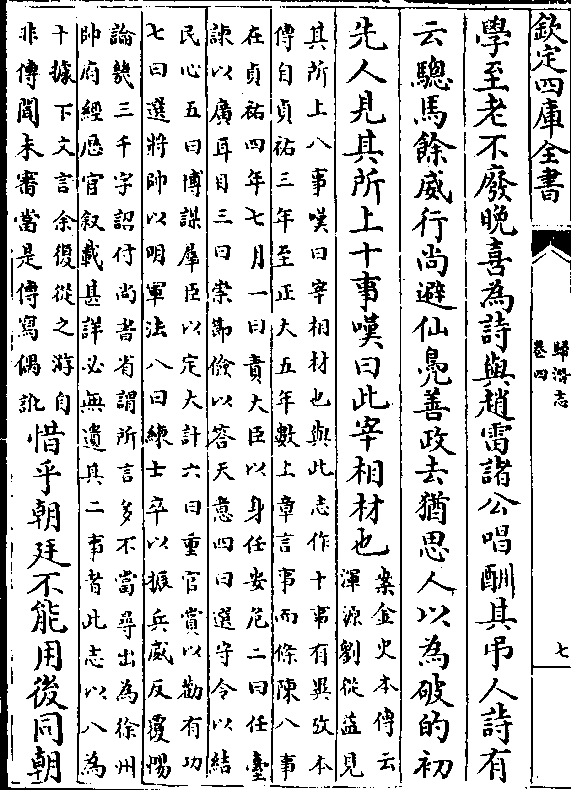 欽定四庫全書
歸潛志
卷四
七
學至老不廢晚喜為詩與趙雷諸公唱酬其吊人詩有
云驄馬餘威行尚避仙鳧善政去猶思人以為破的初
先人見其所上十事嘆曰此宰相材也
案金史本傳云
渾源劉從益見
其所上八事嘆曰宰相材也與此志作十事有異攷本
傳自貞祐三年至正大五年數上章言事而條陳八事
在貞祐四年七月一曰責大臣以身任安危二曰任臺
諫以廣耳目三曰崇節儉以答天意四曰選守令以結
民心五曰博謀羣臣以定大計六曰重官賞以勸有功
七曰選將帥以明軍法八曰練士卒以振兵威反覆惕
論幾三千字詔付尚書省謂所言多不當尋出為徐州
帥府經歷官叙載甚詳必無遺其二事者此志以八為
十據下文言余復從之游自
非傳聞未審當是傳寫偶訛
惜乎朝廷不能用後同朝